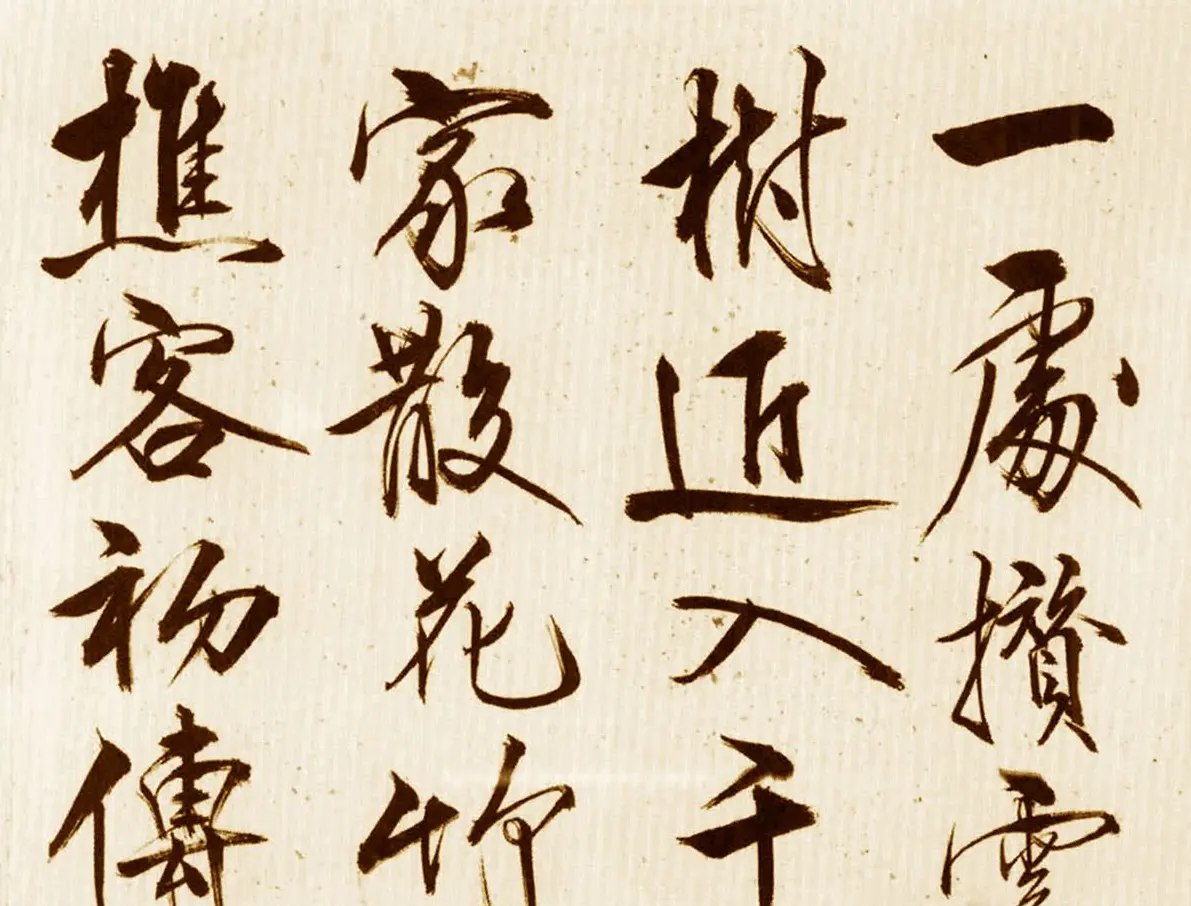 一處攢雲
樹近入千
家散花竹
樵客初傳